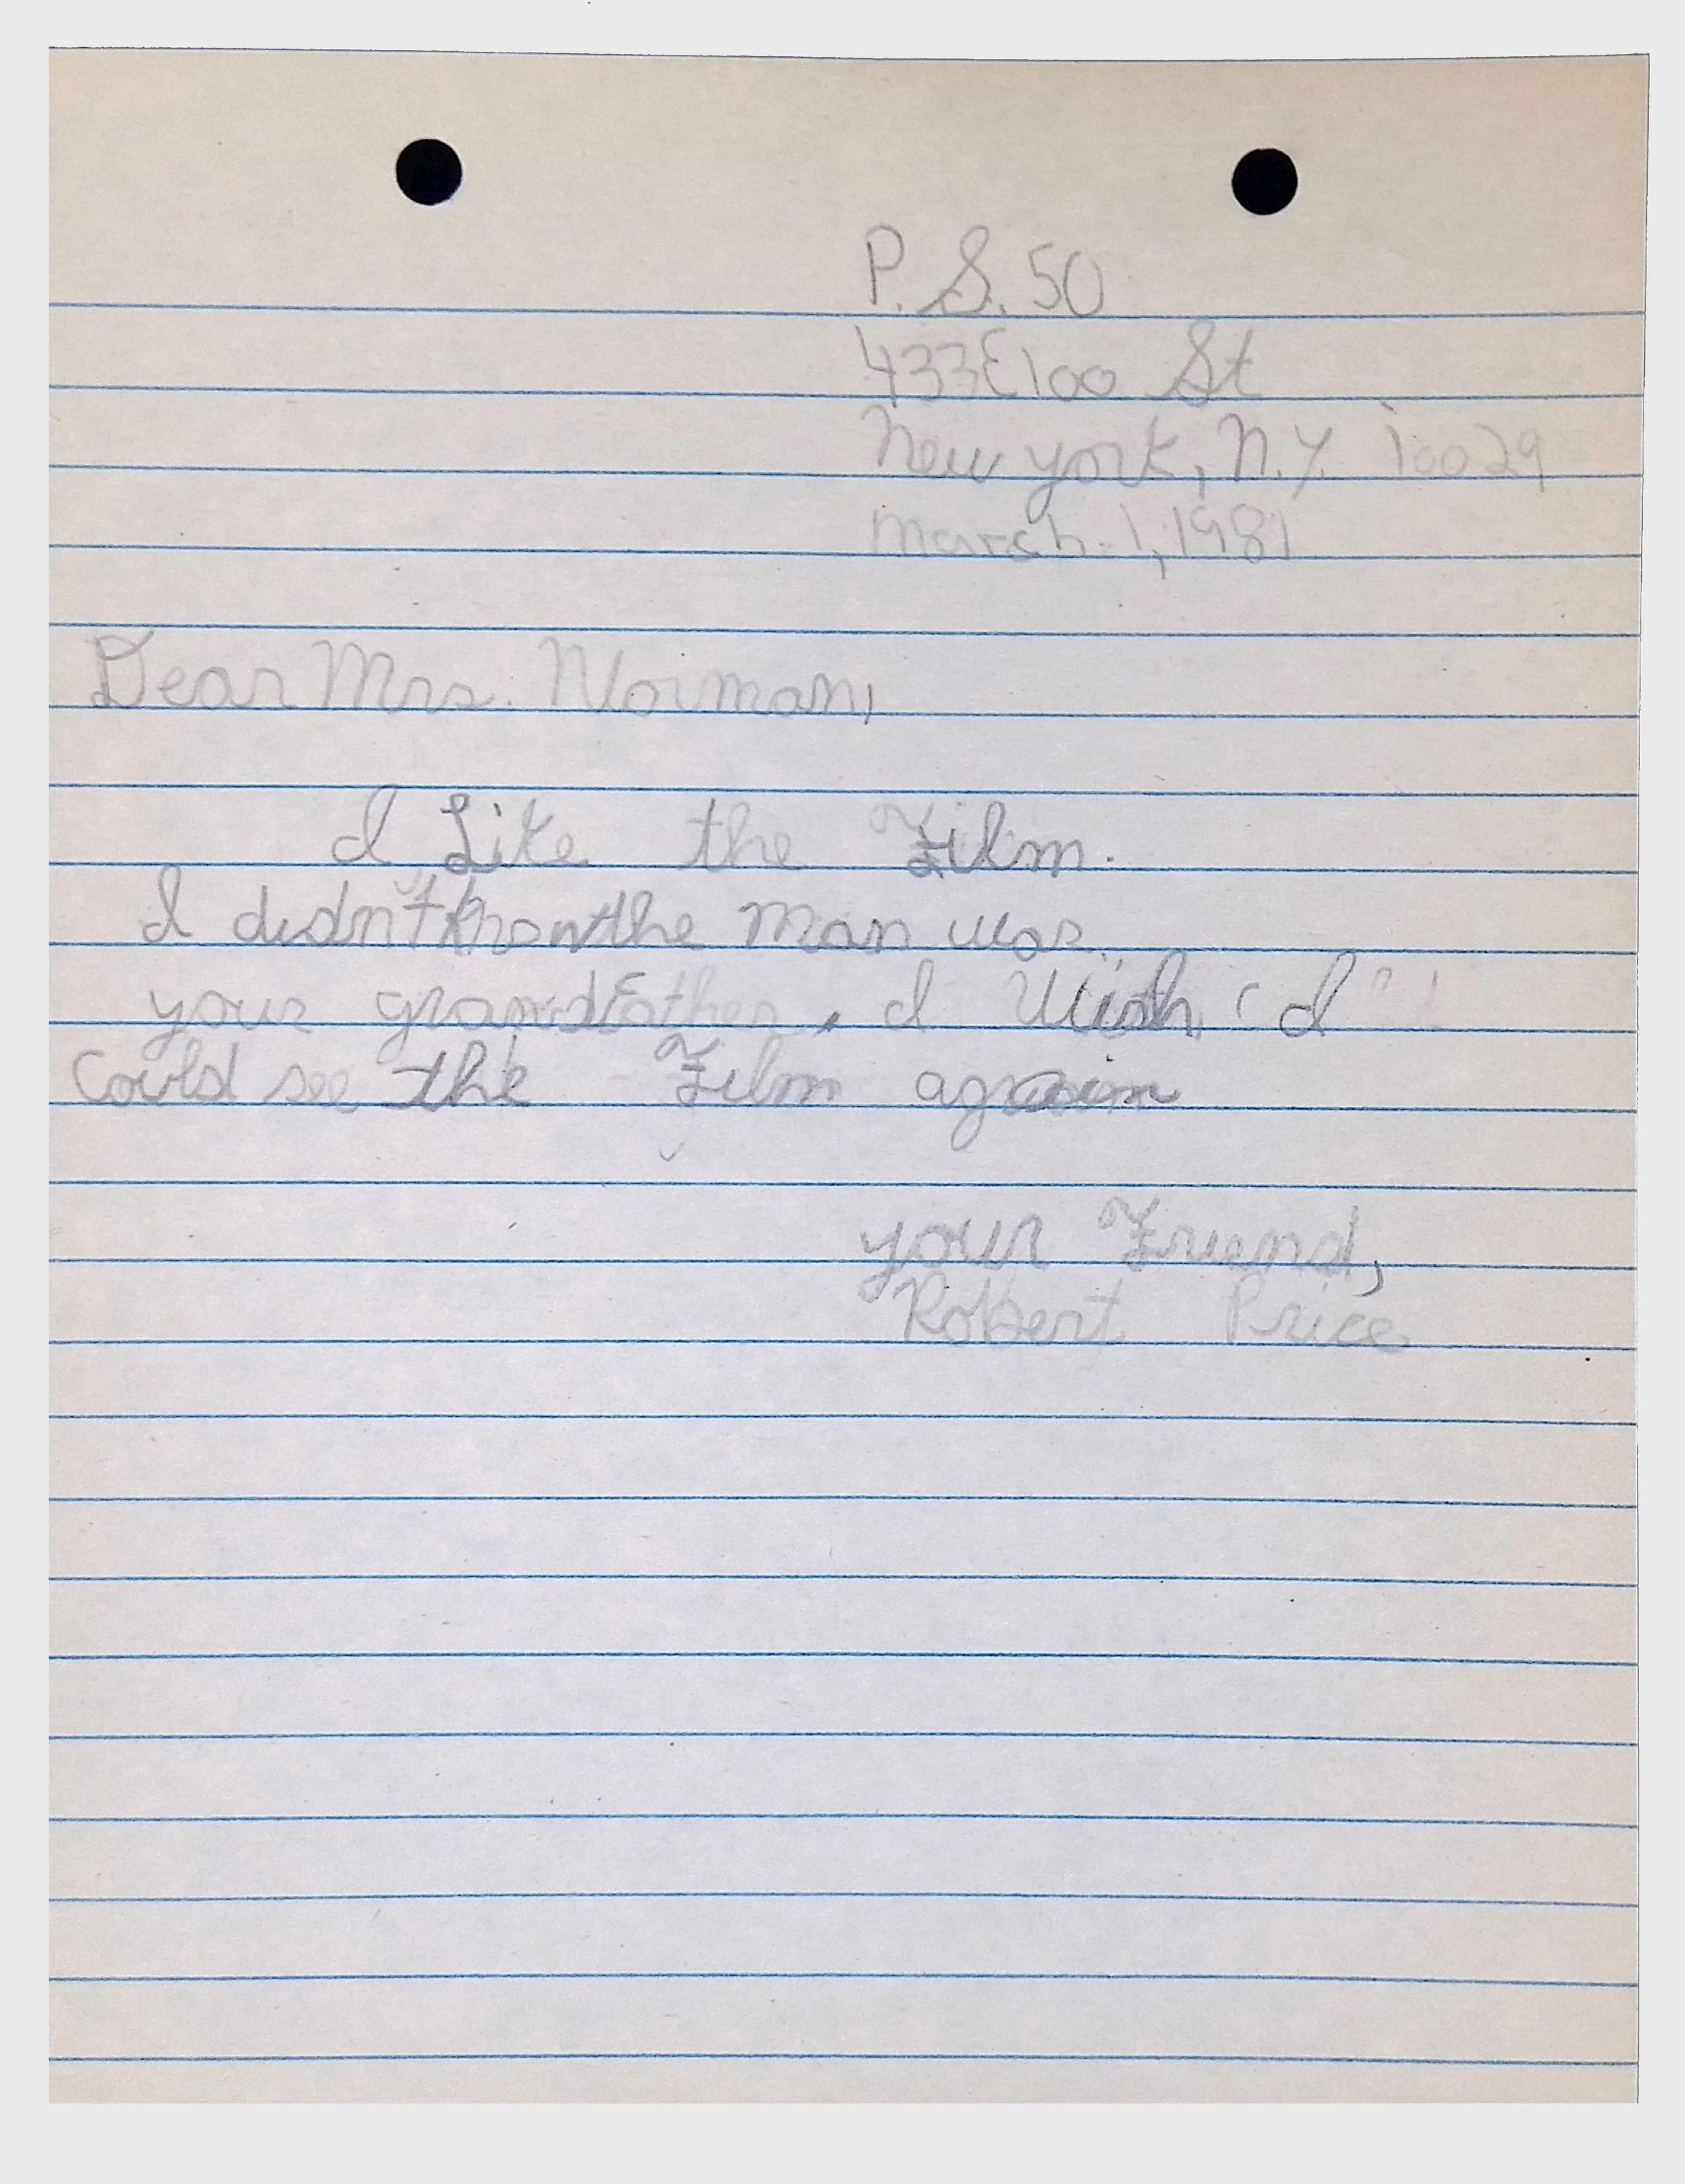 P. S. 50
433E100 St
New york, N.Y. 10029
March 1, 1981
Dear Mrs. Norman,
I Like the Film.
I didn't know the Man was
your grandFather. I Wish I
Could see the Film again
your Friend,
Robert Price